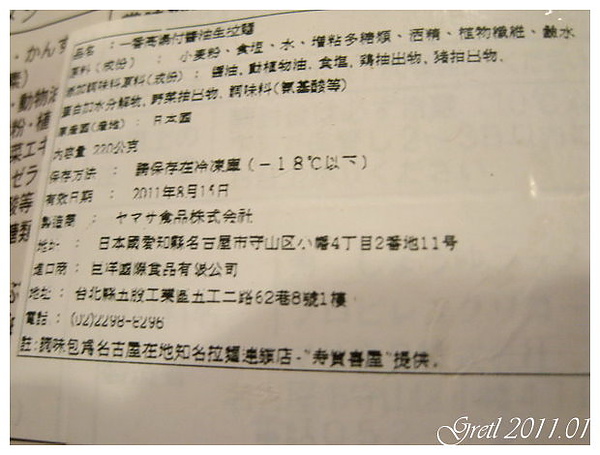 ・かんす
素)
動物油
粉・植
菜エキ
ゼラ
酸等
糖類
品名 : 一番高湯付醬油生拉麵
原料(成份) : 小麥粉、食塩、水、増粘多糖類、酒精、植物纖維、鹼水
添加調味料原料(成份) : 醬油, 動植物油, 食塩, 鶏抽出物, 猪抽出物,
蛋白加水分解物, 野菜抽出物, 調味料(氨基酸等)
原產國(產地) : 日本國
內容量 220公克
保存方法 : 請保存在冷凍庫(-18℃以下)
有效日期 : 2011年8月15日
製造商 : ヤマサ食品株式会社
地址 : 日本國愛知縣名古屋市守山区小幡4丁目2番地11号
進口商 : 巨洋國際食品有限公司
地址 : 台北縣五股工業區五工二路62巷8號1樓
電話 : (02)2298-8298
註:調味包為名古屋在地知名拉麵連鎖店-"寿賀喜屋"提供.
Gretl 2011.01